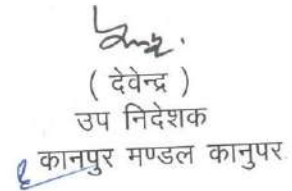 ( देवेन्द्र )
उप निदेशक
कानपुर मण्डल कानुपर